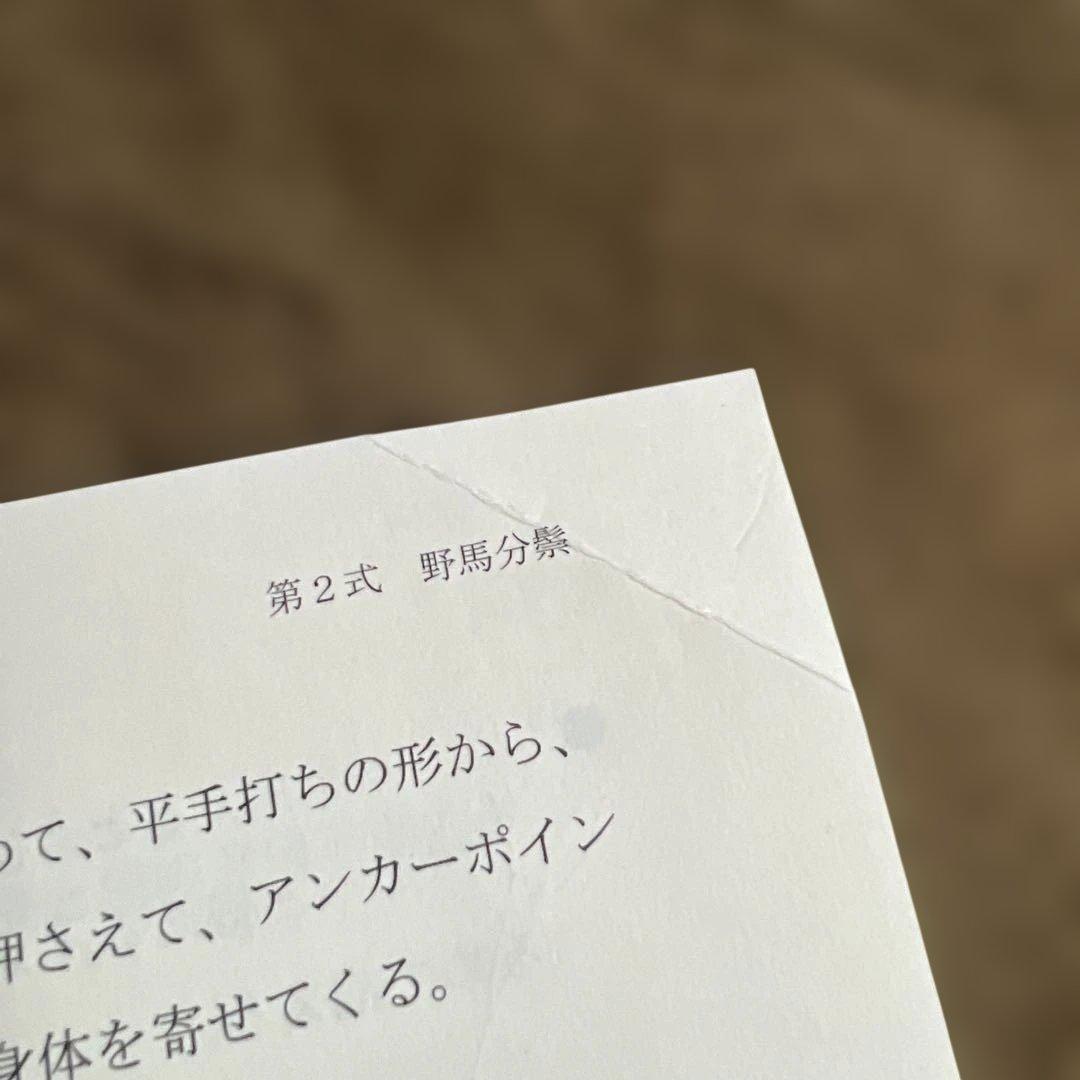 第２式　野馬分鬃
って、平手打ちの形から、
押さえて、アンカーポイン
身体を寄せてくる。